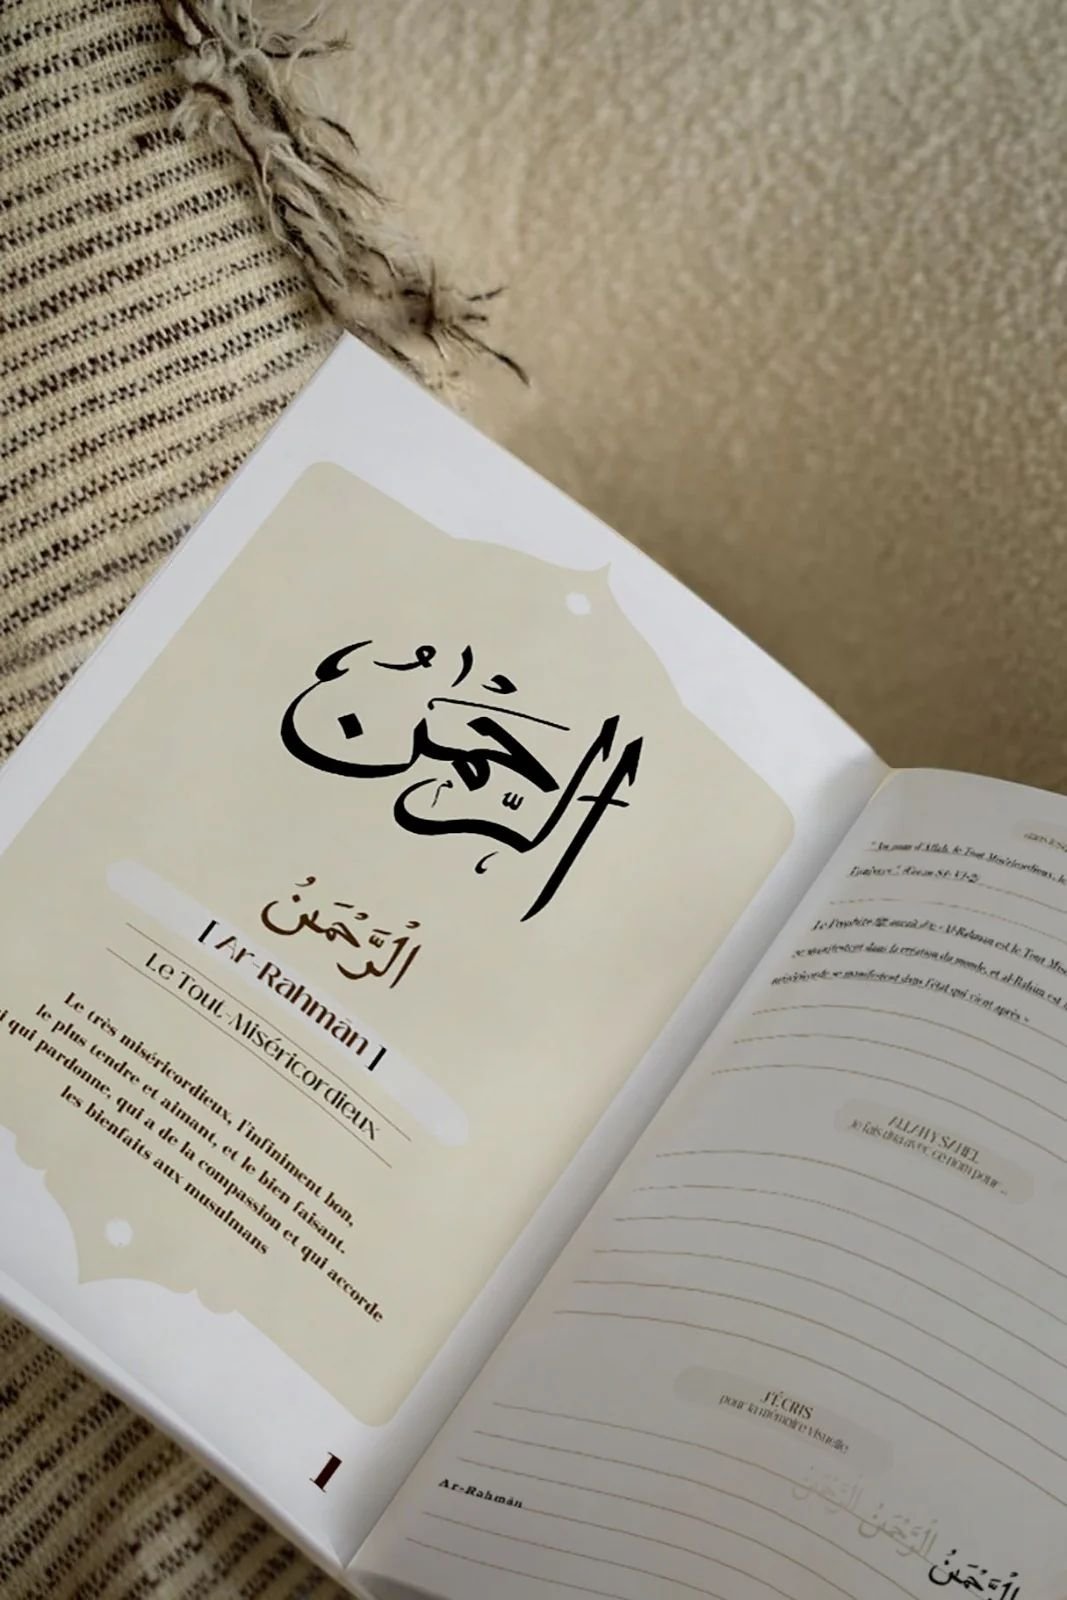 الرَّحْمَٰنُ
الرَّحْمَنُ
[ Ar-Rahmān ]
Le Tout-Miséricordieux
Le très miséricordieux, l'infiniment bon,
le plus tendre et aimant, et le bien faisant.
qui pardonne, qui a de la compassion et qui accorde
les bienfaits aux musulmans
1
d'Allah, le Tout Miséricordieux, le
Le Prophète ﷺ : « Al-Rahman est le Tout
se manifestent dans la création du monde, et al-Rahim est
se manifestent dans l'état qui vient après »
ALLAHY SAHEL
Je fais dua avec ce nom pour ...
J'ÉCRIS
pour la mémoire visuelle
Ar-Rahmān
الرَّحْمَنُ الرَّحْمَنُ الرَّحْمَنُ